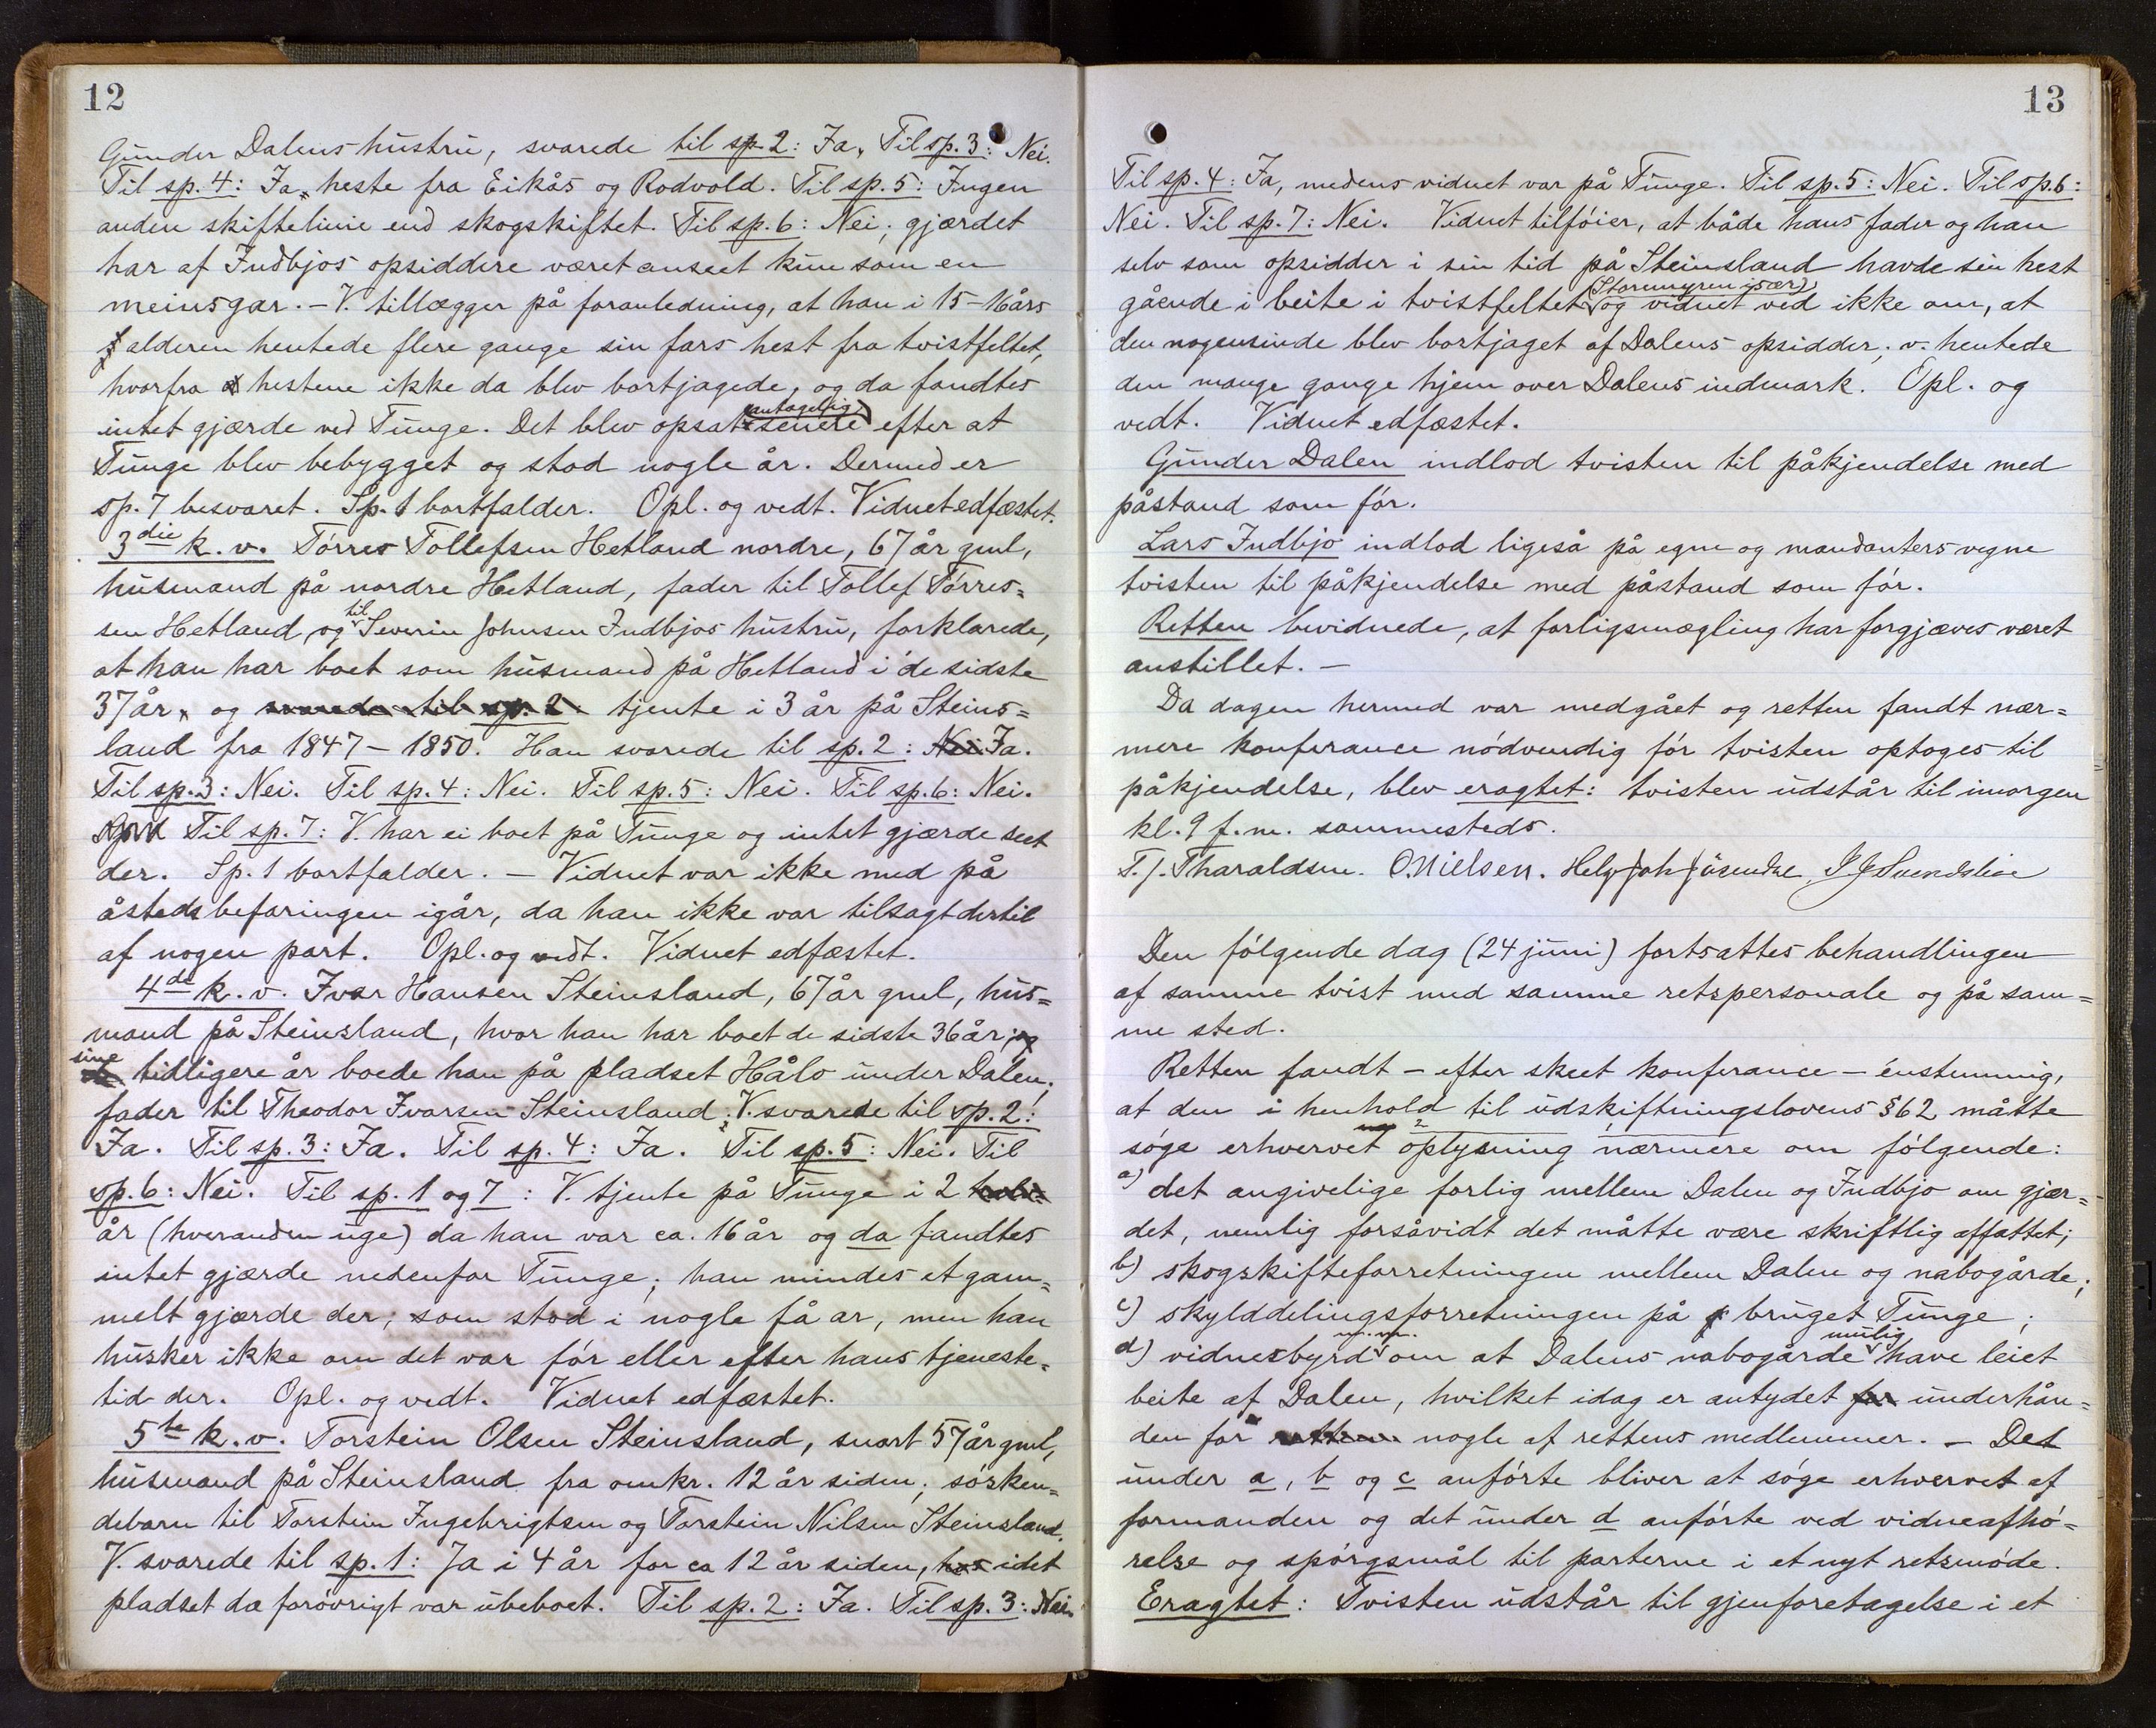 12
Gunder Dalens hustru, svarede til sp. 2: Ja. Til sp. 3: Nei.
Til sp. 4: Ja, heste fra Eikås og Rodvold. Til sp. 5: Ingen
anden skiftelinie end skogskiftet. Til sp. 6: Nei; gjærdet
har af Indbjos opsiddere været anseet kun som en
meinsgar. – V. tillægger på foranledning, at han i 15–16 års
alderen hentede flere gange sin fars hest fra tvistfeltet,
hvorfra hestene ikke da blev bortjagede, og da fandtes
intet gjærde ved Tunge. Det blev opsat antagelig senere efter at
Tunge blev bebygget og stod nogle år. Dermed er
sp. 7 besvaret. Sp. 1 bortfalder. Opl. og vedt. Vidnet edfæstet.
3die k. v. Tórres Tollefsen Hetland nordre, 67 år gml,
husmand på nordre Hetland, fader til Tollef Tórres=
sen Hetland og til Severin Johnsen Indbjos hustru, forklarede,
at han har boet som husmand på Hetland i de sidste
37 år, og svarede til sp. 2: tjente i 3 år på Steins=
land fra 1847 – 1850. Han svarede til sp. 2: Nei Ja.
Til sp. 3: Nei. Til sp. 4: Nei. Til sp. 5: Nei. Til sp. 6: Nei.
Til sp. 7: V. har ei boet på Tunge og intet gjærde seet
der. Sp. 1 bortfalder. – Vidnet var ikke med på
åstedsbefaringen igår, da han ikke var tilsagt dertil
af nogen part. Opl. og vedt. Vidnet edfæstet.
4de k. v. Ivar Hansen Steinsland, 67 år gml, hus=
mand på Steinsland, hvor han har boet de sidste 36 år; og
sine tidligere år boede han på pladset Hålo under Dalen;
fader til Theodor Ivarsen Steinsland; V. svarede til sp. 2:
Ja. Til sp. 3: Ja. Til sp. 4: Ja. Til sp. 5: Nei. Til
sp. 6: Nei. Til sp. 1 og 7: V. tjente på Tunge i 2
år (hveranden uge) da han var ca. 16 år og da fandtes
intet gjærde nedenfor Tunge; han mindes et gam=
melt gjærde der, som stod i nogle få ar, men han
husker ikke om det var fór eller efter hans tjeneste=
tid der. Opl. og vedt. Vidnet edfæstet.
5te k. v. Torstein Olsen Steinsland, snart 57 år gml,
husmand på Steinsland fra omkr. 12 år siden; sósken=
debarn til Torstein Ingebrigtsen og Torstein Nilsen Steinsland.
V. svarede til sp. 1: Ja i 4 år for ca 12 år siden, idet
pladset da foróvrigt var ubeboet. Til sp. 2: Ja. Til sp. 3: Nei.
13
Til sp. 4: Ja, medens vidnet var på Tunge. Til sp. 5: Nei. Til sp. 6:
Nei. Til sp. 7: Nei. Vidnet tilfóier, at både hans fader og han
selv som opsidder i sin tid på Steinsland havde sin hest
gående i beite i tvistfeltet (Storemyren især) og vidnet ved ikke om, at
den nogensinde blev bortjaget af Dalens opsidder; v. hentede
den mange gange hjem over Dalens indmark. Opl. og
vedt. Vidnet edfæstet.
Gunder Dalen indlod tvisten til påkjendelse med
påstand som fór.
Lars Indbjo indlod ligeså på egne og mandanters vegne
tvisten til påkjendelse med påstand som fór.
Retten bevidnede, at forligsmægling har forgjæves været
anstillet. –
Da dagen hermed var medgået og retten fandt nær=
mere konferance nódvendig fór tvisten optoges til
påkjendelse, blev eragtet: tvisten udstår til imorgen
kl. 9 f. m. sammesteds.
T. J. Tharaldsen. O. Nielsen.
Den fólgende dag (24 juni) fortsattes behandlingen
af samme tvist med samme retspersonale og på sam=
me sted.
Retten fandt – efter skeet konferance – énstemmig,
at den i henhold til udskiftningslovens § 62 måtte
sóge erhvervet oplysning nærmere om fólgende:
a) det angivelige forlig mellem Dalen og Indbjo om gjær=
det, nemlig forsåvidt det måtte være skriftlig affattet;
b) skogskifteforretningen mellem Dalen og nabogårde;
c) skylddelingsforretningen på bruget Tunge;
d) vidnesbyrd m. m. om at Dalens nabogårde mulig have leiet
beite af Dalen, hvilket idag er antydet for underhån=
den for retten nogle af rettens medlemmer. – Det
under a, b og c anfórte bliver at sóge erhvervet af
formanden og det under d anfórte ved vidneafhó=
relse og spórgsmål til parterne i et nyt retsmóde.
Eragtet: Tvisten udstår til gjenforetagelse i et